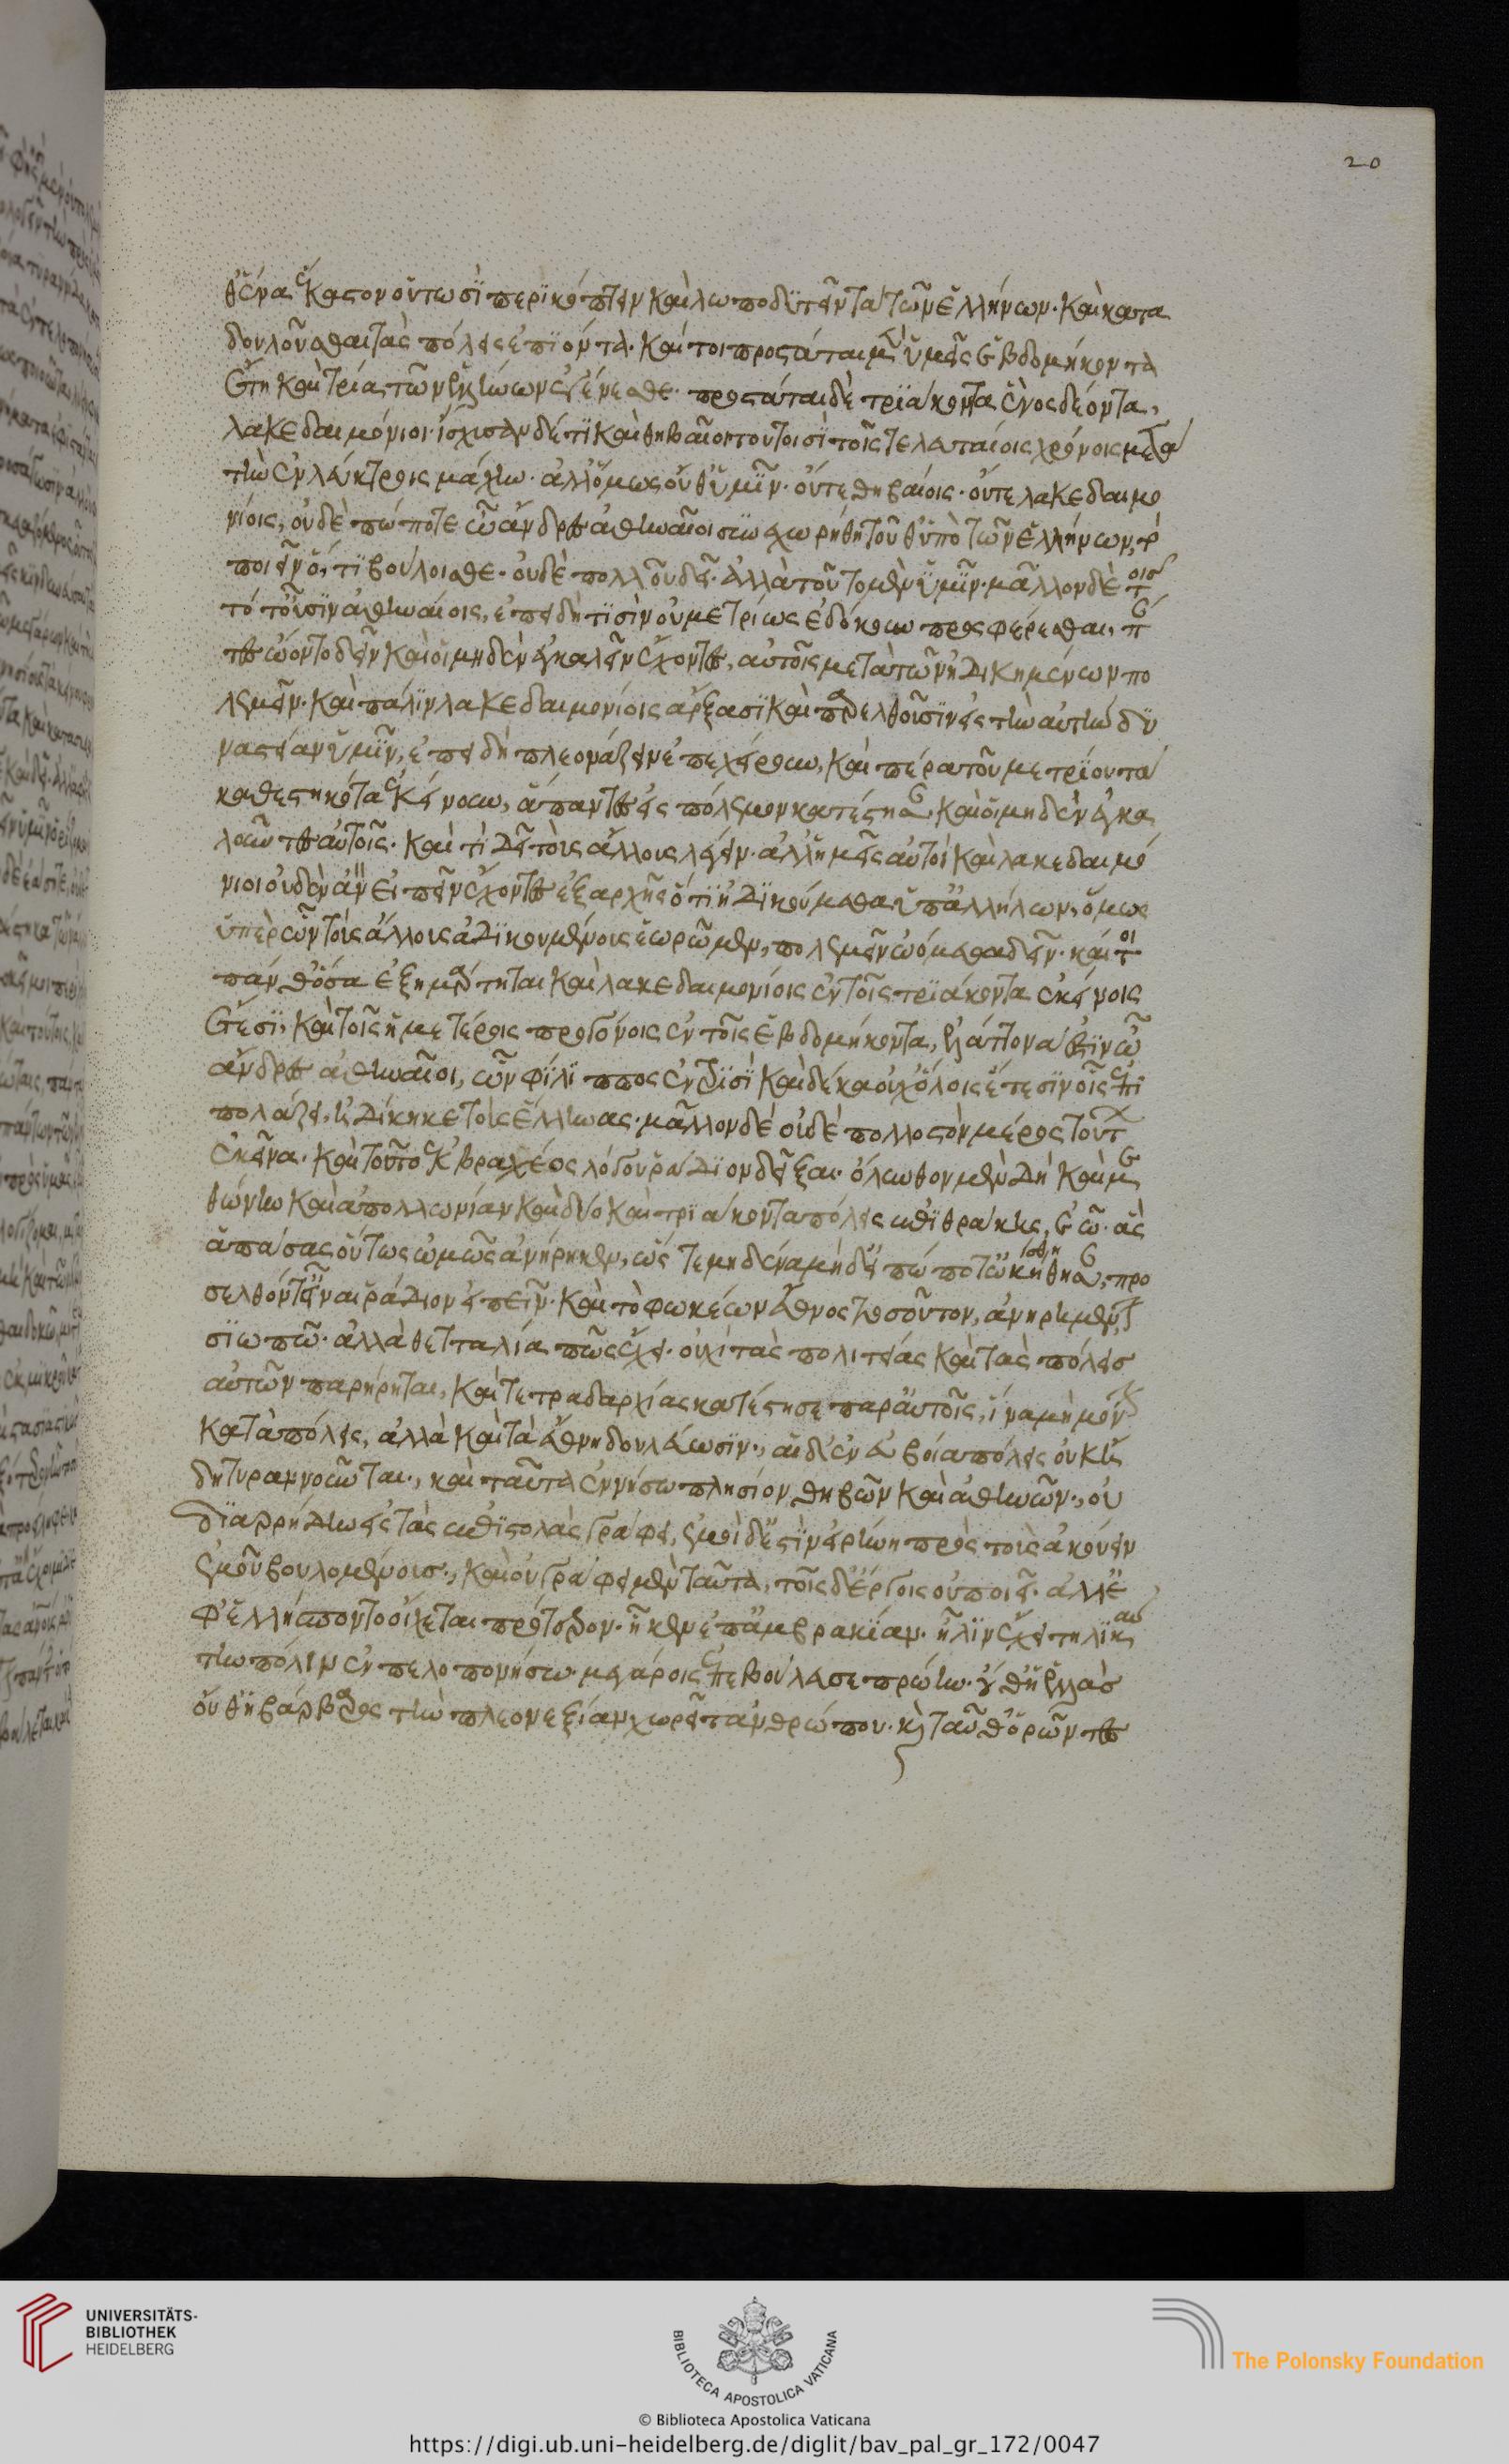 20
θ' ἕνα ἕκαστον οὑτωσὶ περικόπτειν καὶ λωποδυτεῖν τὰ τῶν ἑλλήνων. καὶ κατα
δουλοῦσθαι τὰς πόλεις ἐπιόντα. καίτοι προστάται μὲν ὑμεῖς ἑβδομήκοντα
ἔτη καὶ τρία τῶν ἑλλήνων ἐγένεσθε. προστάται δὲ τριάκοντα ἑνὸς δέοντα,
λακεδαιμόνιοι. ἴσχυσαν δέ τι καὶ θηβαῖοι τουτουσὶ τοῖς τελευταίοις χρόνοις μετὰ
τὴν ἐν λεύκτροις μάχην. ἀλλ' ὅμως οὔθ' ὑμῖν. οὔτε θηβαίοις. οὔτε λακεδαιμο
νίοις, οὐδὲ πώποτε ὦ ἄνδρες ἀθηναῖοι συνεχωρήθη τοῦθ' ὑπὸ τῶν ἑλλήνων,
ποιεῖν ὅ,τι βούλοισθε. οὐδὲ πολλοῦ δεῖ. ἀλλὰ τοῦτο μὲν ὑμῖν. μᾶλλον δὲ τοῖς
τότ' οὖσιν ἀθηναίοις, ἐπειδή τισιν οὐ μετρίως ἐδόκουν προσφέρεσθαι, πάν
τες ᾤοντο δεῖν καὶ οἱ μηδὲν ἐγκαλεῖν ἔχοντες, αὐτοῖς μετὰ τῶν ἠδικημένων πο
λεμεῖν. καὶ πάλιν λακεδαιμονίοις ἄρξασι καὶ παρελθοῦσιν εἰς τὴν αὐτὴν δυ
ναστείαν ὑμῖν, ἐπειδὴ πλεονάζειν ἐπεχείρουν, καὶ πέρα τοῦ μετρίου τὰ
καθεστηκότα ἐκίνουν, ἅπαντες εἰς πόλεμον κατέστησαν, καὶ οἱ μηδὲν ἐγκα
λοῦντες αὐτοῖς. καὶ τί δεῖ τοὺς ἄλλους λέγειν. ἀλλ' ἡμεῖς αὐτοὶ καὶ λακεδαιμό
νιοι οὐδὲν ἂν εἰπεῖν ἔχοντες ἐξ ἀρχῆς ὅ τι ἠδικούμεθα ὑπ' ἀλλήλων, ὅμως
ὑπὲρ ὧν τοὺς ἄλλους ἀδικουμένους ἑωρῶμεν, πολεμεῖν ᾠόμεθα δεῖν. καίτοι
πάνθ' ὅσα ἐξημάρτηται καὶ λακεδαιμονίοις ἐν τοῖς τριάκοντα ἐκείνοις
ἔτεσι, καὶ τοῖς ἡμετέροις προγόνοις ἐν τοῖς ἑβδομήκοντα, ἐλάττονά ἐστιν ὦ
ἄνδρες ἀθηναῖοι, ὧν φίλιππος ἐν τρισὶ καὶ δέκα οὐχ ὅλοις ἔτεσιν οἷς ἐπι
πολάζει, ἠδίκηκε τοὺς ἕλληνας. μᾶλλον δὲ οὐδὲ πολλοστὸν μέρος τούτων
ἐκεῖνα. καὶ τοῦτο ἐκ βραχέος λόγου ῥᾴδιον δεῖξαι. ὄλυνθον μὲν δὴ καὶ με
θώνην καὶ ἀπολλωνίαν καὶ δύο καὶ τριάκοντα πόλεις ἐπὶ θράκης, ἐῶ. ἃς
ἁπάσας οὕτως ὠμῶς ἀνῄρηκεν, ὥς τε μηδένα μηδ' εἰ πώποτ' ᾠκήθησαν, προ
σελθόντ' εἶναι ῥᾴδιον εἰπεῖν. καὶ τὸ φωκέων ἔθνος τοσοῦτον, ἀνῃρημένον
σιωπῶ. ἀλλὰ θετταλία πῶς ἔχει. οὐχὶ τὰς πολιτείας καὶ τὰς πόλεις
αὐτῶν παρῄρηται, καὶ τετραδαρχίας κατέστησε παρ' αὐτοῖς, ἵνα μὴ μόνον
κατὰ πόλεις, ἀλλὰ καὶ τὰ ἔθνη δουλεύωσιν., αἱ δ' ἐν εὐβοία πόλεις οὐκ ἤ
δη τυραννοῦνται., καὶ ταῦτα ἐν νήσω πλησίον θηβῶν καὶ ἀθηνῶν., οὐ
διαρρήδην εἰς τὰς ἐπιστολὰς γράφει, ἐμοὶ δ' ἐστὶν εἰρήνη πρὸς τοὺς ἀκούειν
ἐμοῦ βουλομένους., καὶ οὐ γράφει μὲν ταῦτα, τοῖς δ' ἔργοις οὐ ποιεῖ. ἀλλ' ἐ
φ' ἑλλήσποντον οἴχεται. πρότερον. ἧκεν ἐπ' ἀμβρακίαν. ἦλιν ἔχει τηλικαύ
την πόλιν ἐν πελοποννήσω. μεγάροις ἐπεβούλευσε πρώην. οὔθ' ἡ ἑλλὰς
οὔθ' ἡ βάρβαρος τὴν πλεονεξίαν χωρεῖ τἀνθρώπου. καὶ ταῦθ' ὁρῶντες
UNIVERSITÄTS-
BIBLIOTHEK
HEIDELBERG
BIBLIOTECA APOSTOLICA VATICANA
The Polonsky Foundation
© Biblioteca Apostolica Vaticana
https://digi.ub.uni-heidelberg.de/diglit/bav_pal_gr_172/0047